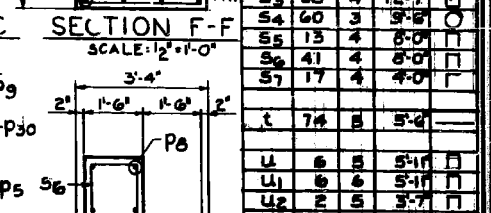 SECTION F-F
SCALE: ½"=1'-0"
3'-4"
2" 1'-6" 1'-6" 2"
P8
S6
P30
P5
S4 60 3 9'-6"
S5 13 4 8'-0"
S6 41 4 8'-0"
S7 17 4 4'-0"
t 74 5 5'-6"
U 6 5 5'-11"
U1 6 6 5'-11"
U2 2 5 3'-7"